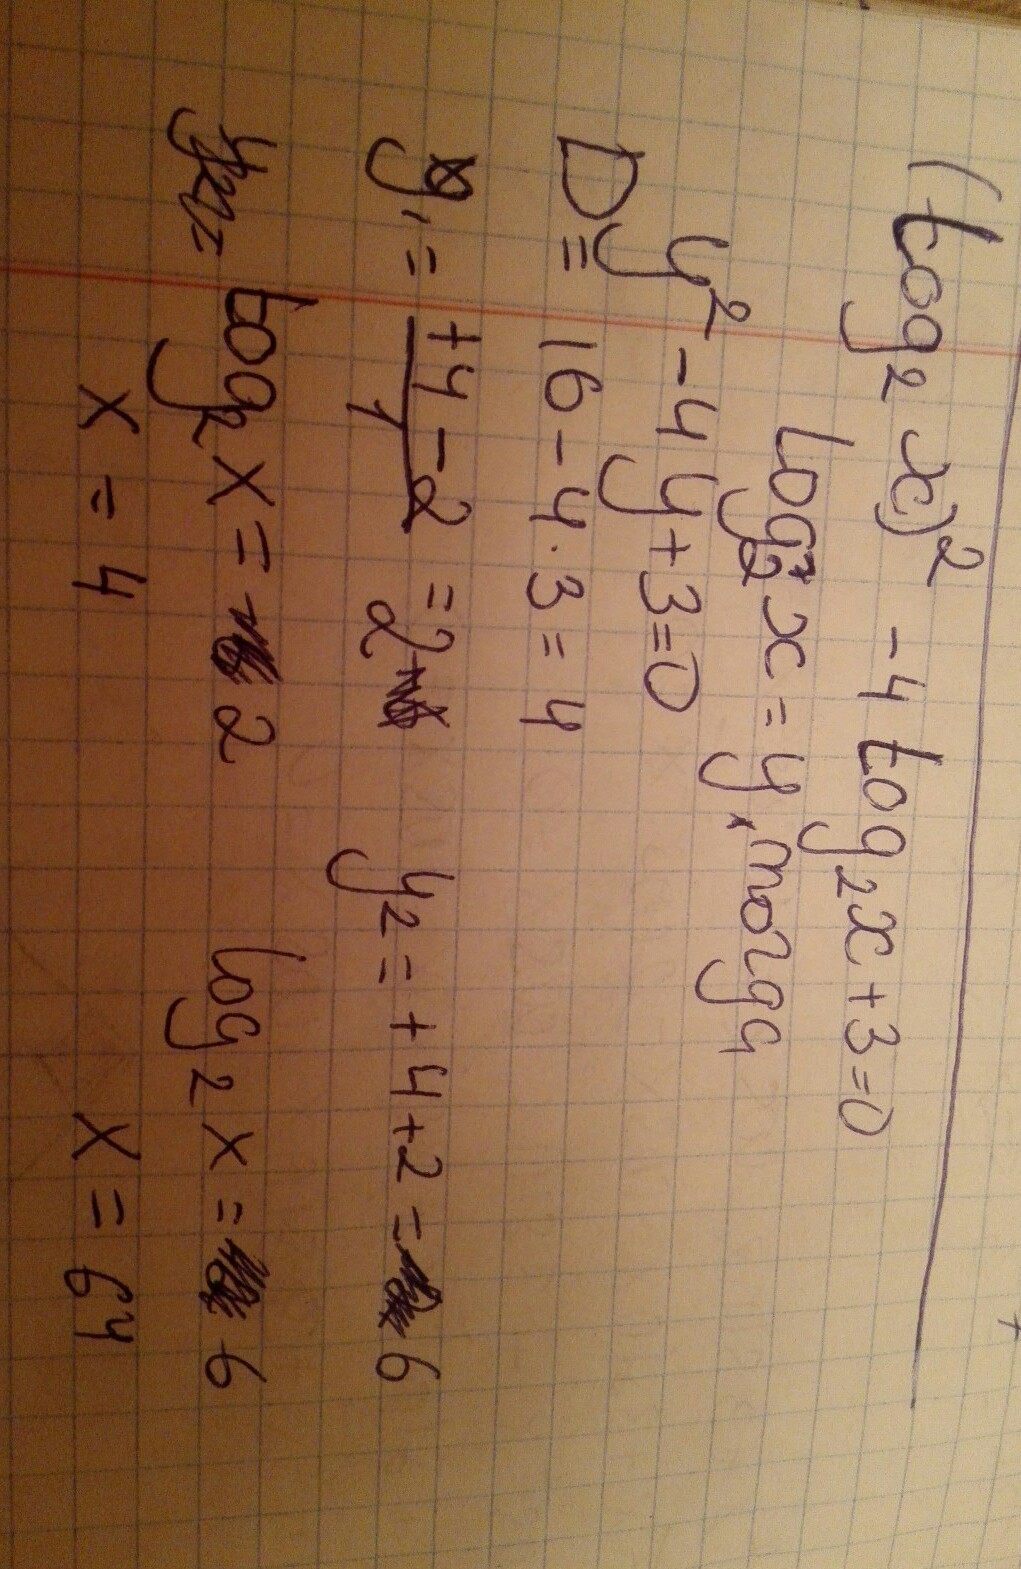 (log₂ x)² - 4 log₂ x + 3 = 0
log₂ x = y, тогда
y² - 4y + 3 = 0
D = 16 - 4·3 = 4
y₁ = (+4 - 2)/1 = 2 y₂ = +4 + 2 = 6
log₂ x = 2 log₂ x = 6
x = 4 x = 64